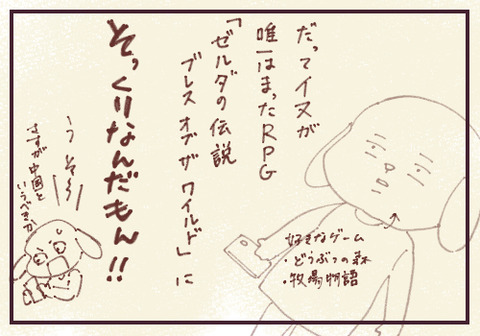 だってイヌが
唯一はまったRPG
「ゼルダの伝説
ブレス オブ ザ ワイルド」に
そっくりなんだもん!!
好きなゲーム
・どうぶつの森
・牧場物語
うそぉ
さすが中国と
いうべきか